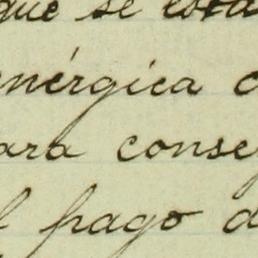 que se esta
enérgica c
ara conse
l pago d